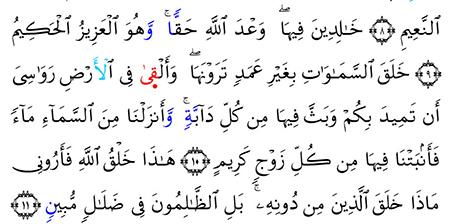 ٱلنَّعِيمِ ﴿٨﴾ خَـٰلِدِينَ فِيهَا ۖ وَعْدَ ٱللَّهِ حَقًّا ۚ وَهُوَ ٱلْعَزِيزُ ٱلْحَكِيمُ
﴿٩﴾ خَلَقَ ٱلسَّمَـٰوَٰتِ بِغَيْرِ عَمَدٍ تَرَوْنَهَا ۖ وَأَلْقَىٰ فِى ٱلْأَرْضِ رَوَٰسِىَ
أَن تَمِيدَ بِكُمْ وَبَثَّ فِيهَا مِن كُلِّ دَآبَّةٍ ۚ وَأَنزَلْنَا مِنَ ٱلسَّمَآءِ مَآءً
فَأَنۢبَتْنَا فِيهَا مِن كُلِّ زَوْجٍ كَرِيمٍ ﴿١٠﴾ هَـٰذَا خَلْقُ ٱللَّهِ فَأَرُونِى
مَاذَا خَلَقَ ٱلَّذِينَ مِن دُونِهِۦ ۚ بَلِ ٱلظَّـٰلِمُونَ فِى ضَلَـٰلٍ مُّبِينٍ ﴿١١﴾